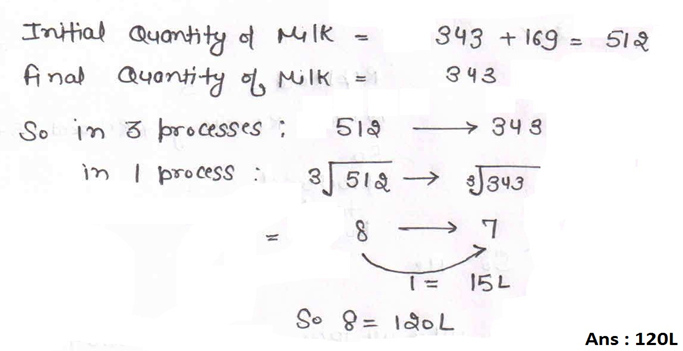 Initial Quantity of Milk = 343 + 169 = 512
final Quantity of Milk = 343
So in 3 processes : 512 → 343
in 1 process : 3√512 → ∛343
= 8 → 7
1 = 15L
So 8 = 120L
Ans : 120L